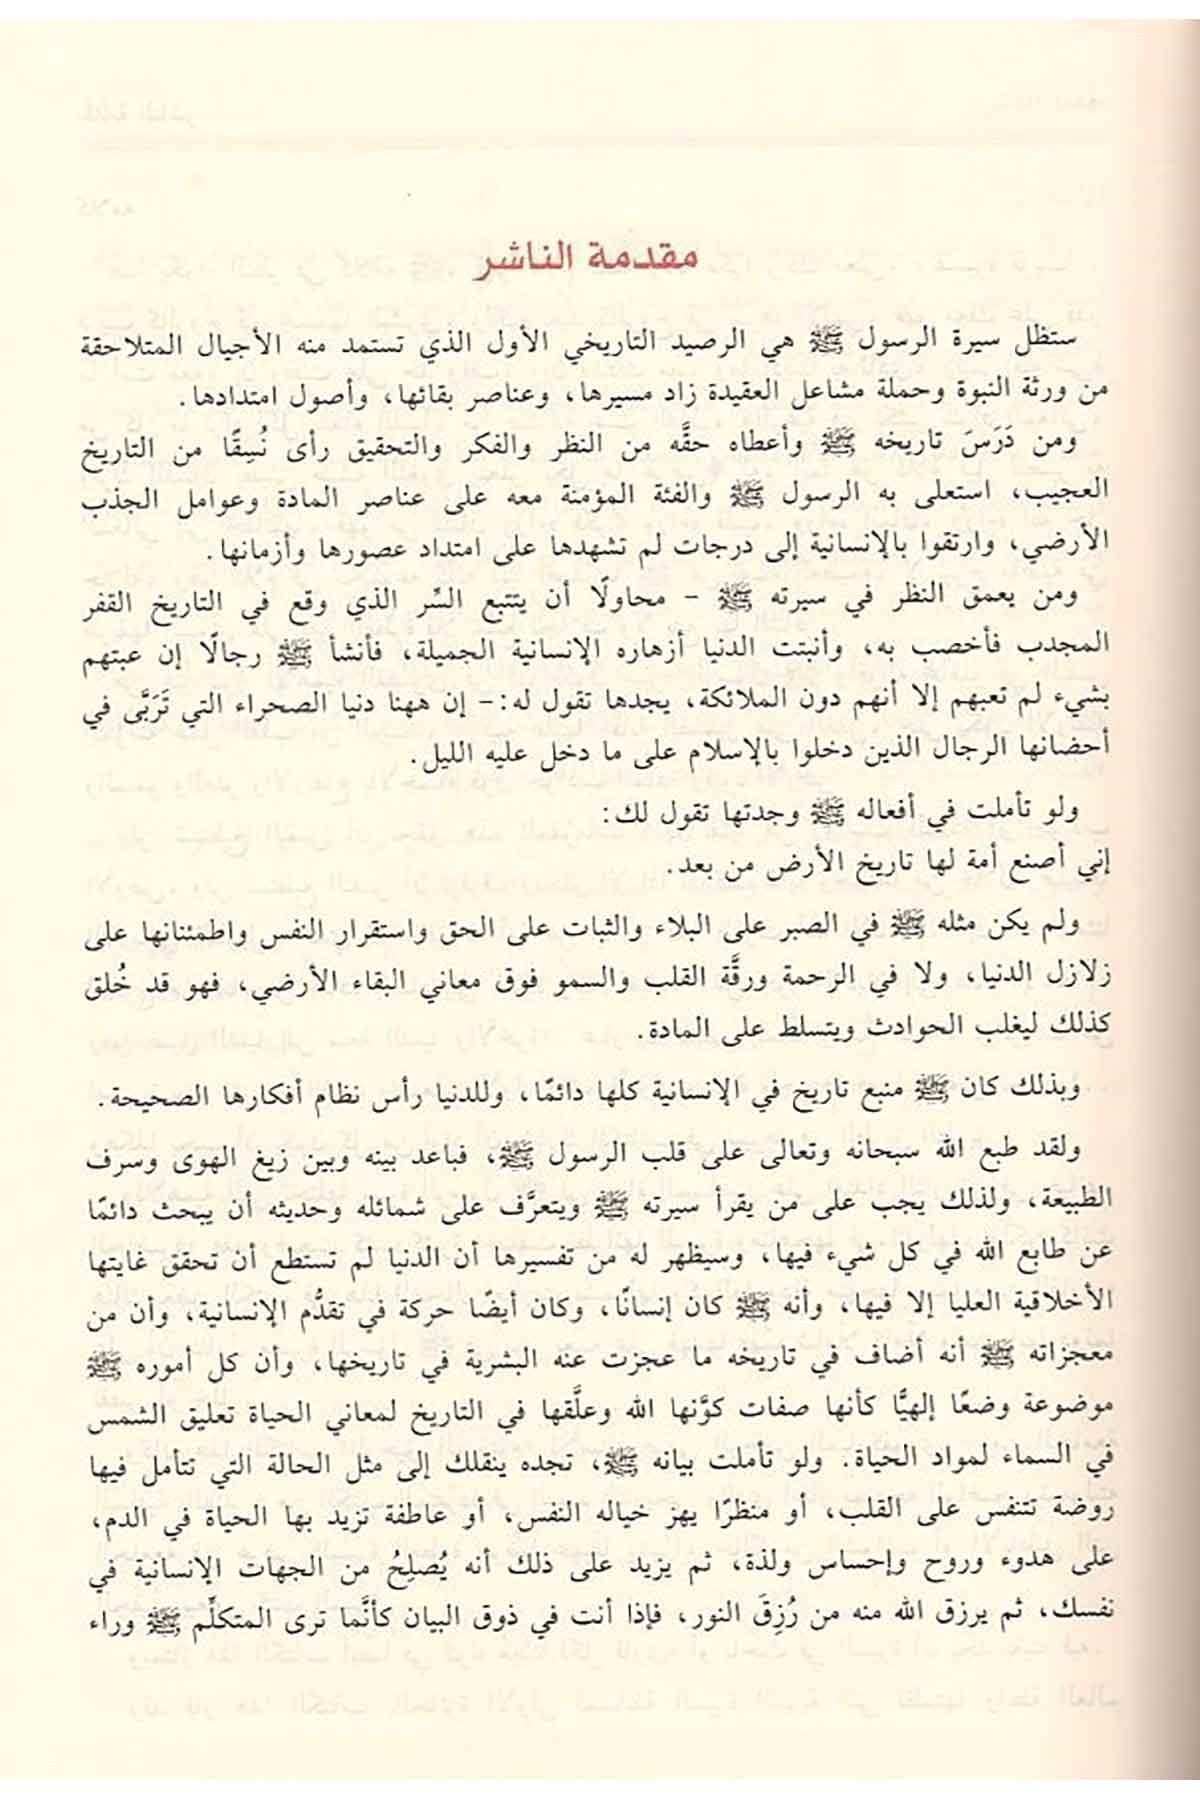 مقدمة الناشر
ستظل سيرة الرسول ﷺ هي الرصيد التاريخي الأول الذي تستمد منه الأجيال المتلاحقة
من ورثة النبوة وحملة مشاعل العقيدة زاد مسيرها، وعناصر بقائها، وأصول امتدادها.
ومن دَرَسَ تاريخه ﷺ وأعطاه حقَّه من النظر والفكر والتحقيق رأى نُسِقًا من التاريخ
العجيب، استعلى به الرسول ﷺ والفئة المؤمنة معه على عناصر المادة وعوامل الجذب
الأرضي، وارتقوا بالإنسانية إلى درجات لم تشهدها على امتداد عصورها وأزمانها.
ومن يعمق النظر في سيرته ﷺ - محاولًا أن يتتبع السِّر الذي وقع في التاريخ القفر
المجدب فأخصب به، وأنبتت الدنيا أزهاره الإنسانية الجميلة، فأنشأ ﷺ رجالًا إن عبتهم
بشيء لم تعبهم إلا أنهم دون الملائكة، يجدها تقول له:- إن ههنا دنيا الصحراء التي تَرَبَّى في
أحضانها الرجال الذين دخلوا بالإسلام على ما دخل عليه الليل.
ولو تأملت في أفعاله ﷺ وجدتها تقول لك:
إني أصنع أمة لها تاريخ الأرض من بعد.
ولم يكن مثله ﷺ في الصبر على البلاء والثبات على الحق واستقرار النفس واطمئنانها على
زلازل الدنيا، ولا في الرحمة ورقَّة القلب والسمو فوق معاني البقاء الأرضي، فهو قد خُلق
كذلك ليغلب الحوادث ويتسلط على المادة.
وبذلك كان ﷺ منبع تاريخ في الإنسانية كلها دائمًا، وللدنيا رأس نظام أفكارها الصحيحة.
ولقد طبع الله سبحانه وتعالى على قلب الرسول ﷺ، فباعد بينه وبين زيغ الهوى وسرف
الطبيعة، ولذلك يجب على من يقرأ سيرته ﷺ ويتعرَّف على شمائله وحديثه أن يبحث دائمًا
عن طابع الله في كل شيء فيها، وسيظهر له من تفسيرها أن الدنيا لم تستطع أن تحقق غايتها
الأخلاقية العليا إلا فيها، وأنه ﷺ كان إنسانًا، وكان أيضًا حركة في تقدُّم الإنسانية، وأن من
معجزاته ﷺ أنه أضاف في تاريخه ما عجزت عنه البشرية في تاريخها، وأن كل أموره ﷺ
موضوعة وضعًا إلهيًّا كأنها صفات كوَّنها الله وعلَّقها في التاريخ لمعاني الحياة تعليق الشمس
في السماء لمواد الحياة. ولو تأملت بيانه ﷺ، تجده ينقلك إلى مثل الحالة التي تتأمل فيها
روضة تتنفس على القلب، أو منظرًا يهز خياله النفس، أو عاطفة تزيد بها الحياة في الدم،
على هدوء وروح وإحساس ولذة، ثم يزيد على ذلك أنه يُصلِحُ من الجهات الإنسانية في
نفسك، ثم يرزق الله منه من رُزِقَ النور، فإذا أنت في ذوق البيان كأنَّما ترى المتكلِّم ﷺ وراء